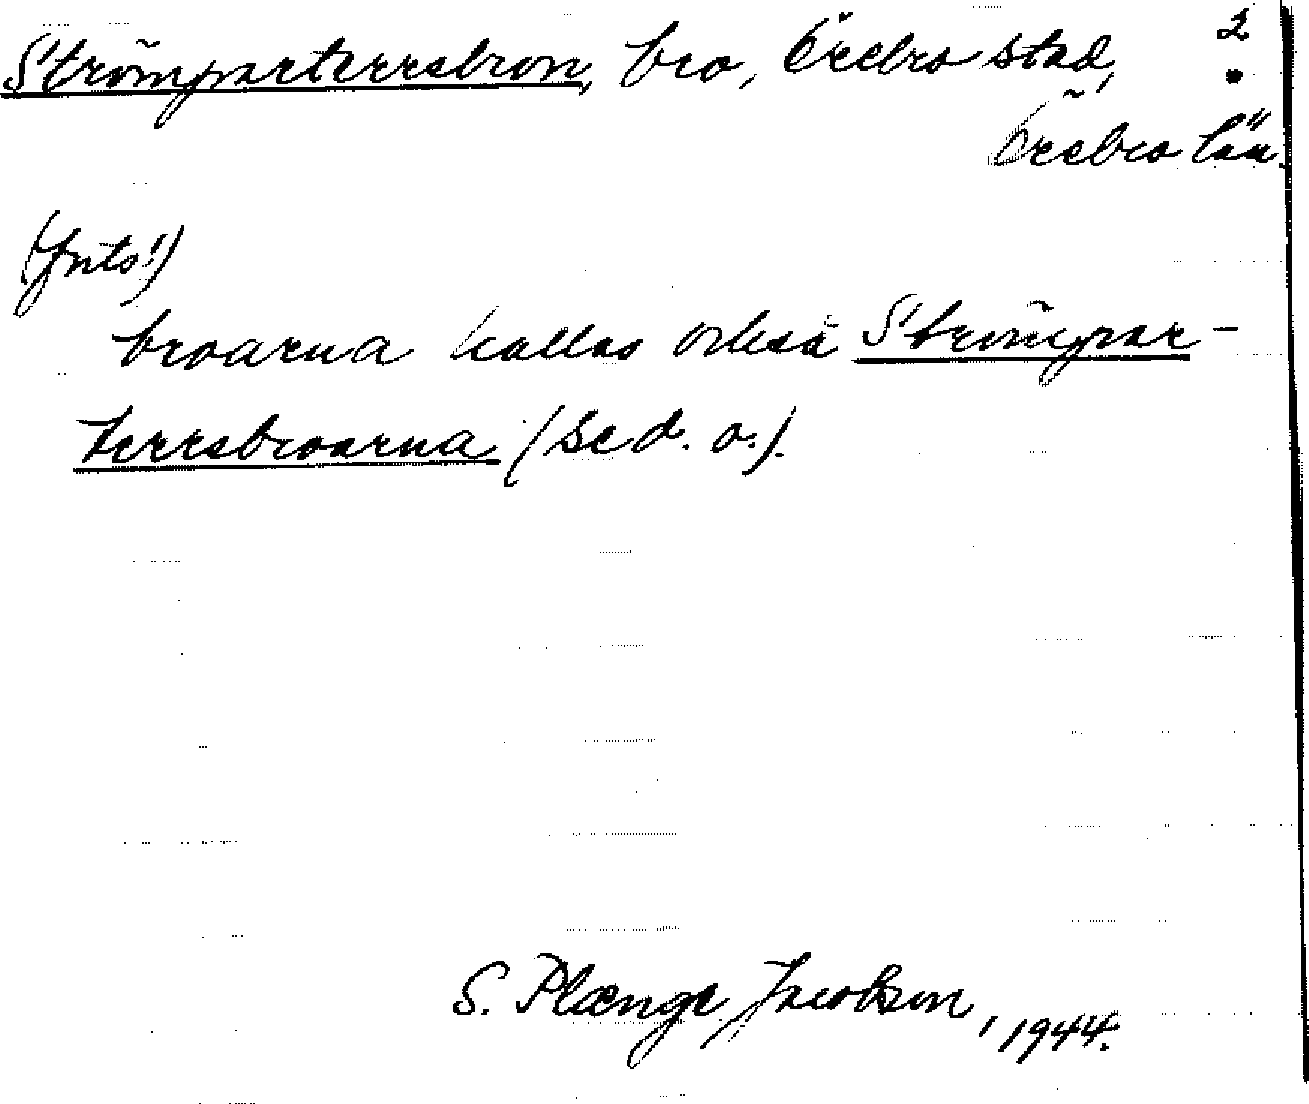 Strömparterrebron, bro, Örebro stad, 2.
Örebro län.
(forts!)
broarna kallas också Strömpar-
terrebroarna (Se d. o.).
S. Plænge Jacobson, 1944.